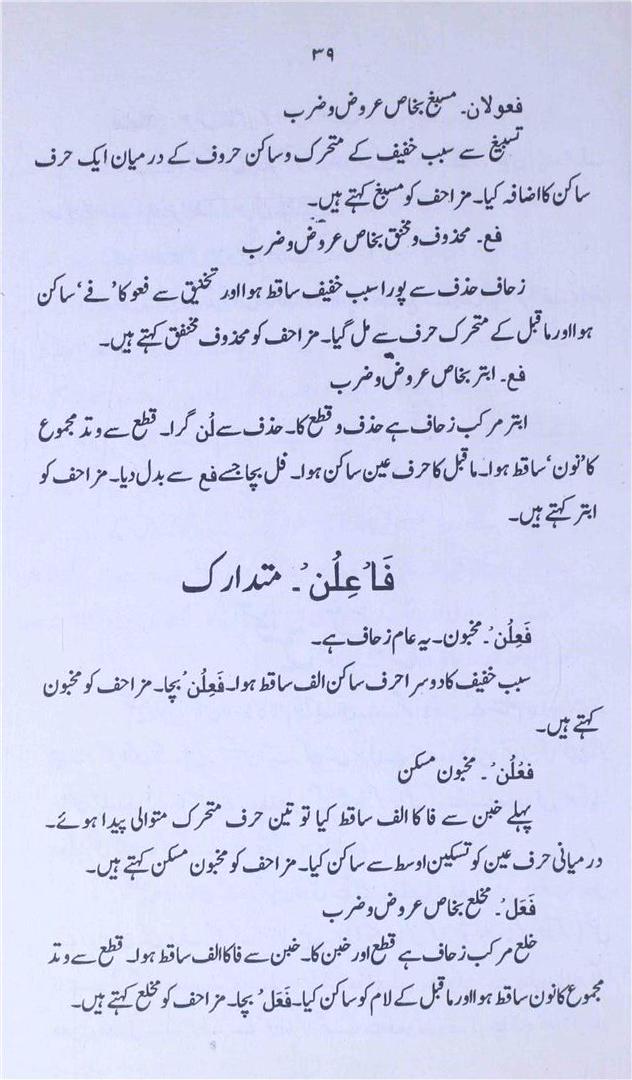 ۳۹
فعولان۔ مسبغ بخاص عروض و ضرب
تسبیغ سے سبب خفیف کے متحرک و ساکن حروف کے درمیان ایک حرف
ساکن کا اضافہ کیا۔ مزاحف کو مسبغ کہتے ہیں۔
فع۔ محذوف و مخنق بخاص عروض و ضرب
زحاف حذف سے پورا سبب خفیف ساقط ہوا اور تخنیق سے فعو کا ’فے‘ ساکن
ہوا اور ماقبل کے متحرک حرف سے مل گیا۔ مزاحف کو محذوف مخنق کہتے ہیں۔
فع۔ ابتر بخاص عروض و ضرب
ابتر مرکب زحاف ہے حذف و قطع کا۔ حذف سے لُن گرا۔ قطع سے وتد مجموع
کا ’نون‘ ساقط ہوا۔ ماقبل کا حرف عین ساکن ہوا۔ فل بچا جسے فع سے بدل دیا۔ مزاحف کو
ابتر کہتے ہیں۔
فَاْعِلُنْ۔ متدارک
فَعِلُنْ۔ مخبون۔ یہ عام زحاف ہے۔
سبب خفیف کا دوسرا حرف ساکن الف ساقط ہوا۔ فَعِلُنْ بچا۔ مزاحف کو مخبون
کہتے ہیں۔
فَعْلُنْ۔ مخبون مسکن
پہلے خبن سے فا کا الف ساقط کیا تو تین حرف متحرک متوالی پیدا ہوئے۔
درمیانی حرف عین کو تسکین اوسط سے ساکن کیا۔ مزاحف کو مخبون مسکن کہتے ہیں۔
فَعَلْ۔ مخلع بخاص عروض و ضرب
خلع مرکب زحاف ہے قطع اور خبن کا۔ خبن سے فا کا الف ساقط ہوا۔ قطع سے وتد
مجموع کا نون ساقط ہوا اور ماقبل کے لام کو ساکن کیا۔ فَعَلْ بچا۔ مزاحف کو مخلع کہتے ہیں۔